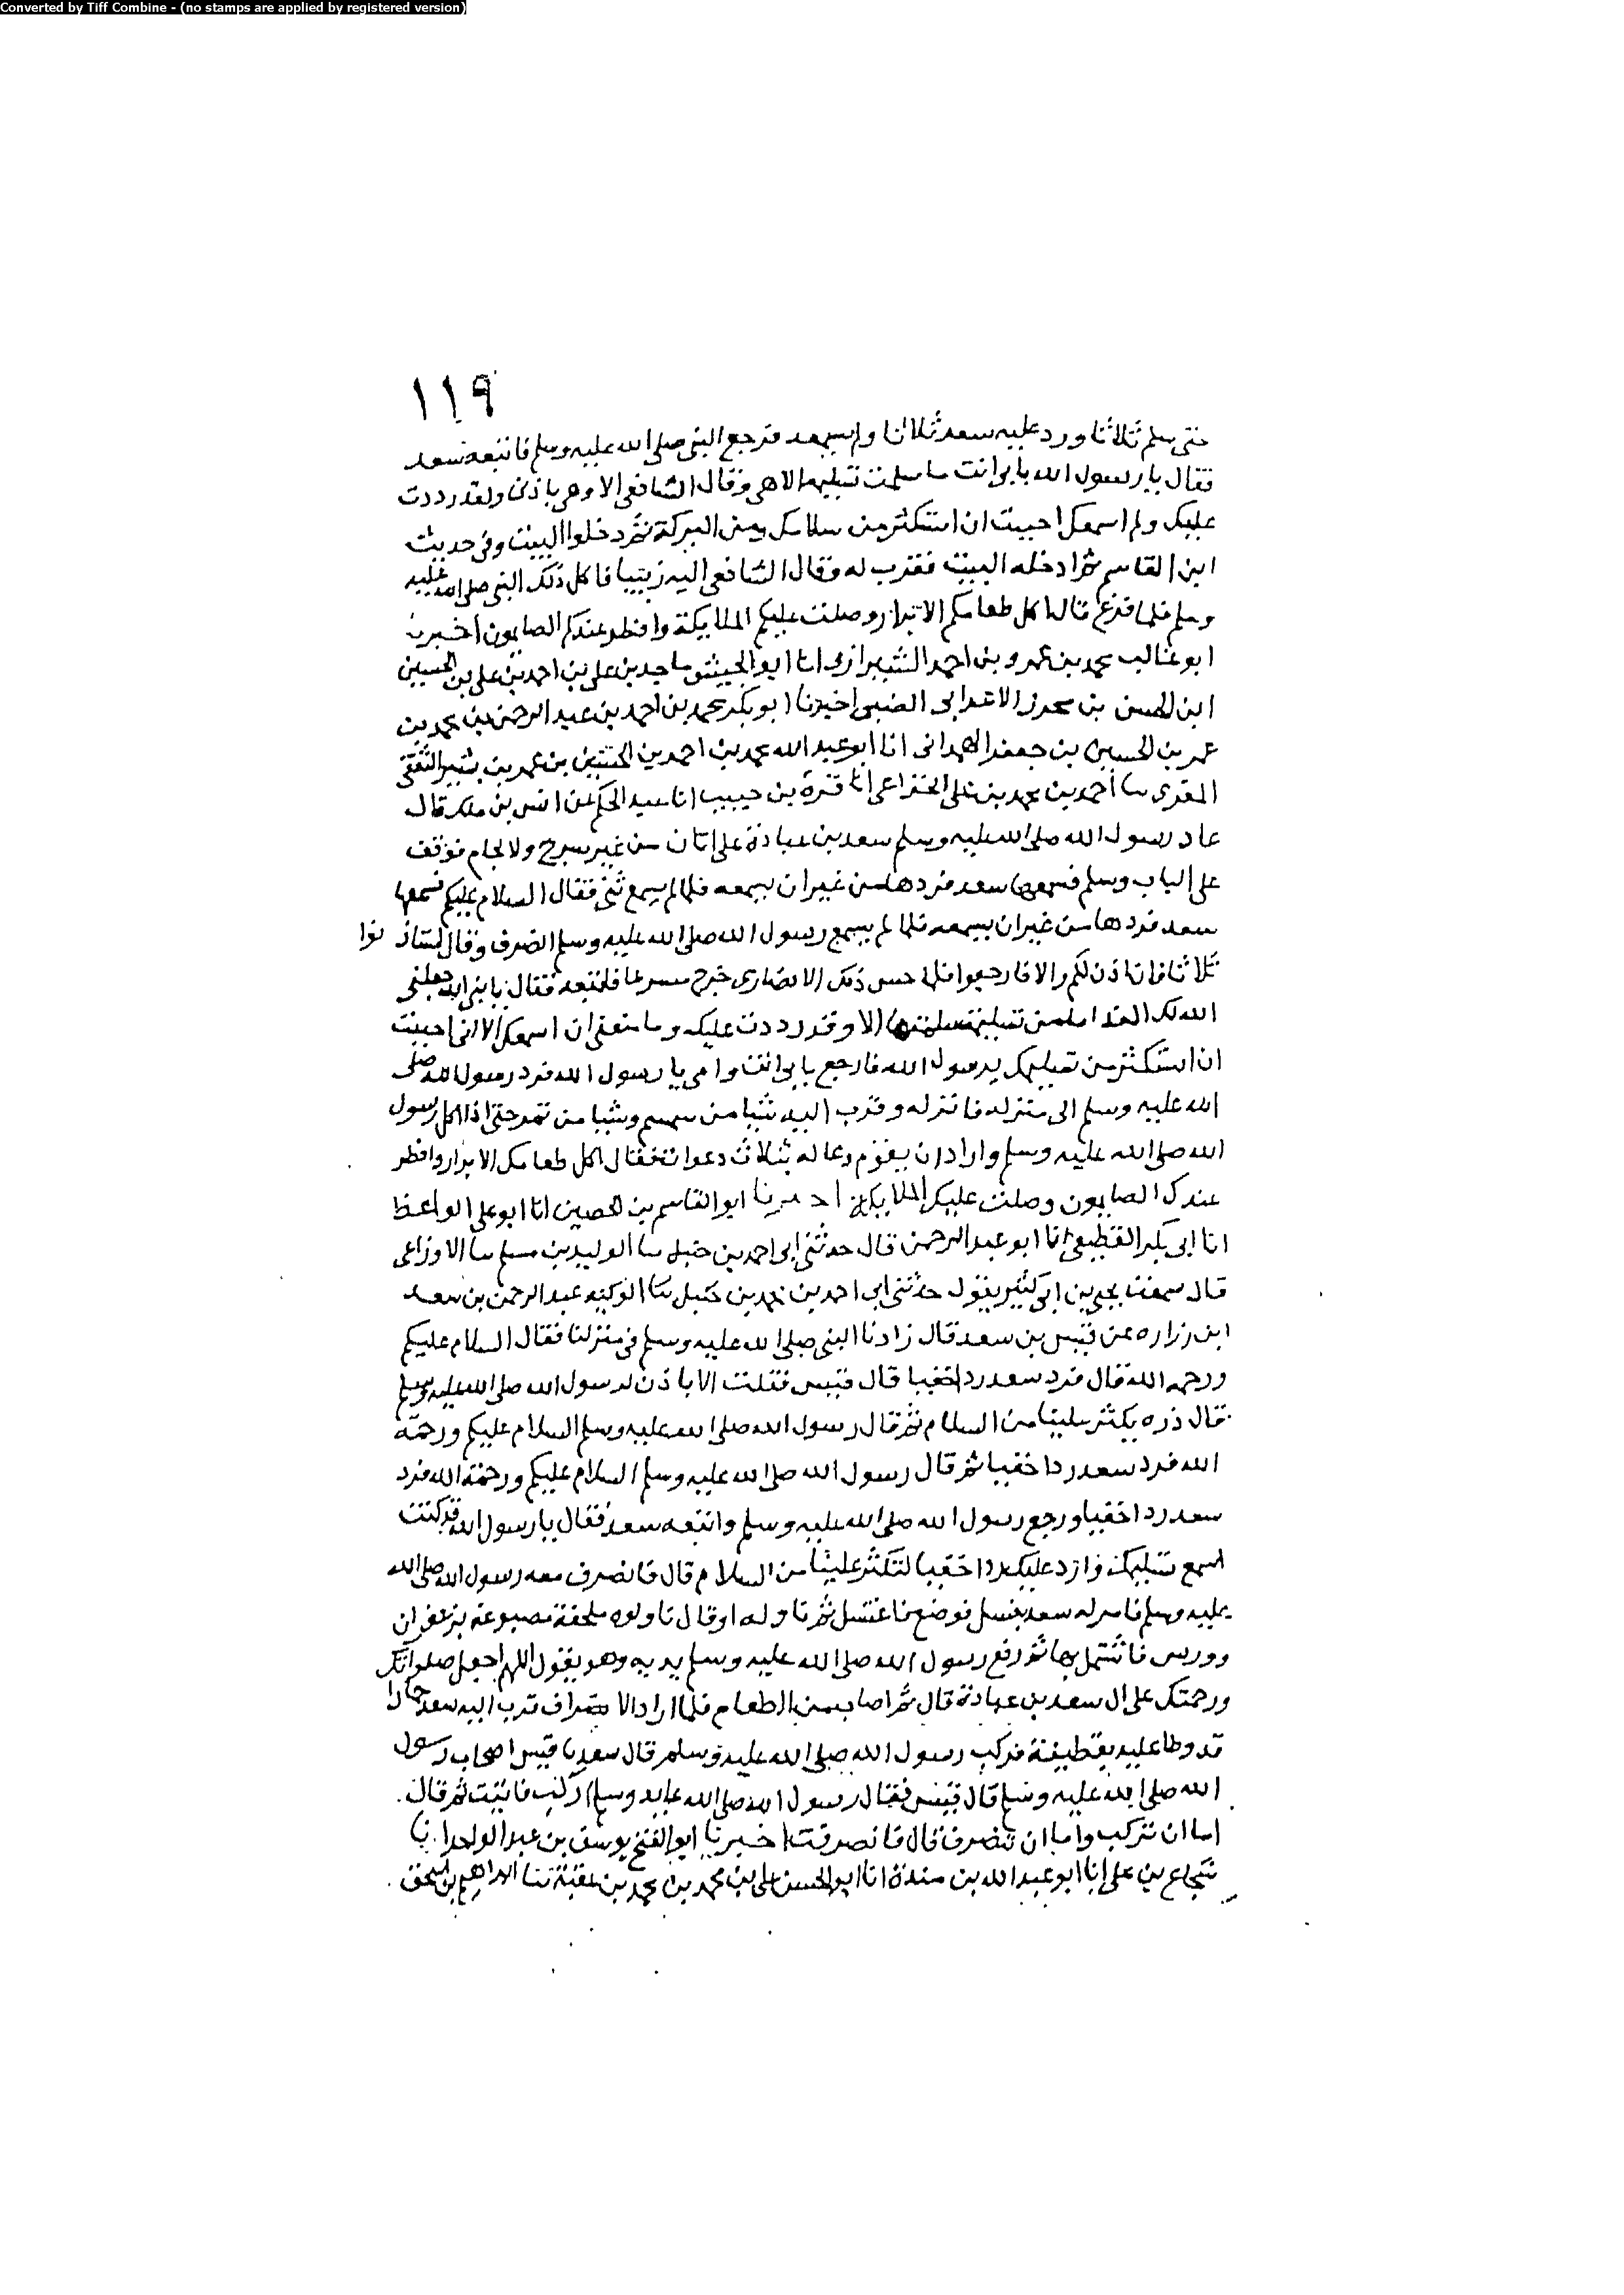 Converted by Tiff Combine - (no stamps are applied by registered version)
١١٩
حتى سلم ثلاثا ورد عليه سعد ثلاثا ولم يسمعه فرجع النبى صلى الله عليه وسلم فاتبعه سعد
فقال يا رسول الله بابى انت ما سلمت تسليمة الا هى وقال الشافعى الا وهى باذنى ولقد رددت
عليك ولم اسمعك احببت ان استكثر من سلامك ومن البركة ثم دخلوا البيت وفى حديث
ابن القاسم ثم ادخله البيت فقرب له وقال الشافعى اليه زبيبا فاكل ذلك النبى صلى الله عليه
وسلم فلما فرغ قال اكل طعامكم الابرار وصلت عليكم الملايكة وافطر عندكم الصايمون اخبرنا
ابو غالب محمد بن عمرو بن احمد الشيرازى انا ابو الجيش ماجد بن على بن احمد بن على بن الحسين
ابن الحسن بن محرز الاعرابى الضبى اخبرنا ابو بكر محمد بن احمد بن عبد الرحمن بن محمد بن
عمر بن الحسين بن جعفر الهمدانى انا ابو عبد الله محمد بن احمد بن بن عمر بن بشير الثقفى
المقرى نا احمد بن محمد بن على الخزاعى انا قرة بن حبيب انا عبد الحكم عن انس بن ملك قال
عاد رسول الله صلى الله عليه وسلم سعد بن عبادة على اتان من غير سرج ولا لجام فوقف
على الباب وسلم فسمعها سعد فردها من غير ان يسمعه فلما لم يسمع ثنى فقال السلام عليكم فسمعها
سعد فردها من غير ان يسمعه فلما لم يسمع رسول الله صلى الله عليه وسلم انصرف وقال استاذنوا
ثلاثا فان اذن لكم والا فارجعوا فلما حس ذلك الانصارى خرج مسرعا فاتبعه فقال يا نبى الله جعلنى
الله لك الفدا ما من تسليمة سلمتها الا وقد رددت عليك وما منعنى ان اسمعك الا انى احببت
ان استكثر من تسليمك يرسول الله فارجع بابى انت وامى يا رسول الله فرد رسول الله صلى
الله عليه وسلم الى منزله فانزله وقرب اليه شيا من سمسم وشيا من تمر حتى اذا اكل رسول
الله صلى الله عليه وسلم واراد ان يقوم دعا له بثلاث دعوات فقال اكل طعامك الابرار وافطر
عندك الصايمون وصلت عليك الملايكة اخبرنا ابو القاسم بن الحصين انا ابو على الواعظ
انا ابى بكر القطيعى انا ابو عبد الرحمن قال حدثنى ابى احمد بن حنبل نا الوليد بن مسلم نا الاوزاعى
قال سمعت يحيى بن ابى كثير يقول حدثنى ابى احمد بن محمد بن حنبل نا عبد الرحمن بن سعد
ابن زراره عن قيس بن سعد قال زارنا النبى صلى الله عليه وسلم فى منزلنا فقال السلام عليكم
ورحمة الله قال فرد سعد ردا خفيا قال قيس فقلت الا تاذن لرسول الله صلى الله عليه وسلم
قال ذره يكثر علينا من السلام ثم قال رسول الله صلى الله عليه وسلم السلام عليكم ورحمة
الله فرد سعد ردا خفيا ثم قال رسول الله صلى الله عليه وسلم السلام عليكم ورحمة الله فرد
سعد ردا خفيا ورجع رسول الله صلى الله عليه وسلم واتبعه سعد فقال يا رسول الله قد كنت
اسمع تسليمك وارد عليك ردا خفيا لتكثر علينا من السلام قال فانصرف معه رسول الله صلى الله
عليه وسلم فامر له سعد بغسل فوضع فاغتسل ثم ناوله او قال ناولوه ملحفة مصبوغة بزعفران
وورس فاشتمل بها ثم رفع رسول الله صلى الله عليه وسلم يديه وهو يقول اللهم اجعل صلواتك
ورحمتك على ال سعد بن عبادة قال ثم اصاب من الطعام فلما اراد الانصراف قرب اليه سعد حمارا
قد وطا عليه بقطيفة فركب رسول الله صلى الله عليه وسلم قال سعد يا قيس اصحاب رسول
الله صلى الله عليه وسلم قال قيس فقال رسول الله صلى الله عليه وسلم اركب فابيت ثم قال
اما ان تركب واما ان تنصرف قال فانصرفت اخبرنا ابو الفتح يوسف بن عبد الواحد انا
شجاع بن على انا ابو عبد الله بن مندة انا ابو الحسن على بن محمد بن محمد بن عقبة ثنا ابراهيم بن اسحق